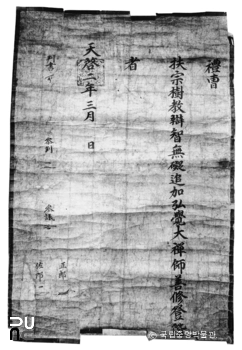 禮曹
扶宗樹敎辯智無礙追加弘覺大禪師善修登階
者
天啓二年三月　日
判書
參判
參議
正郎
佐郎
국민중앙박물관